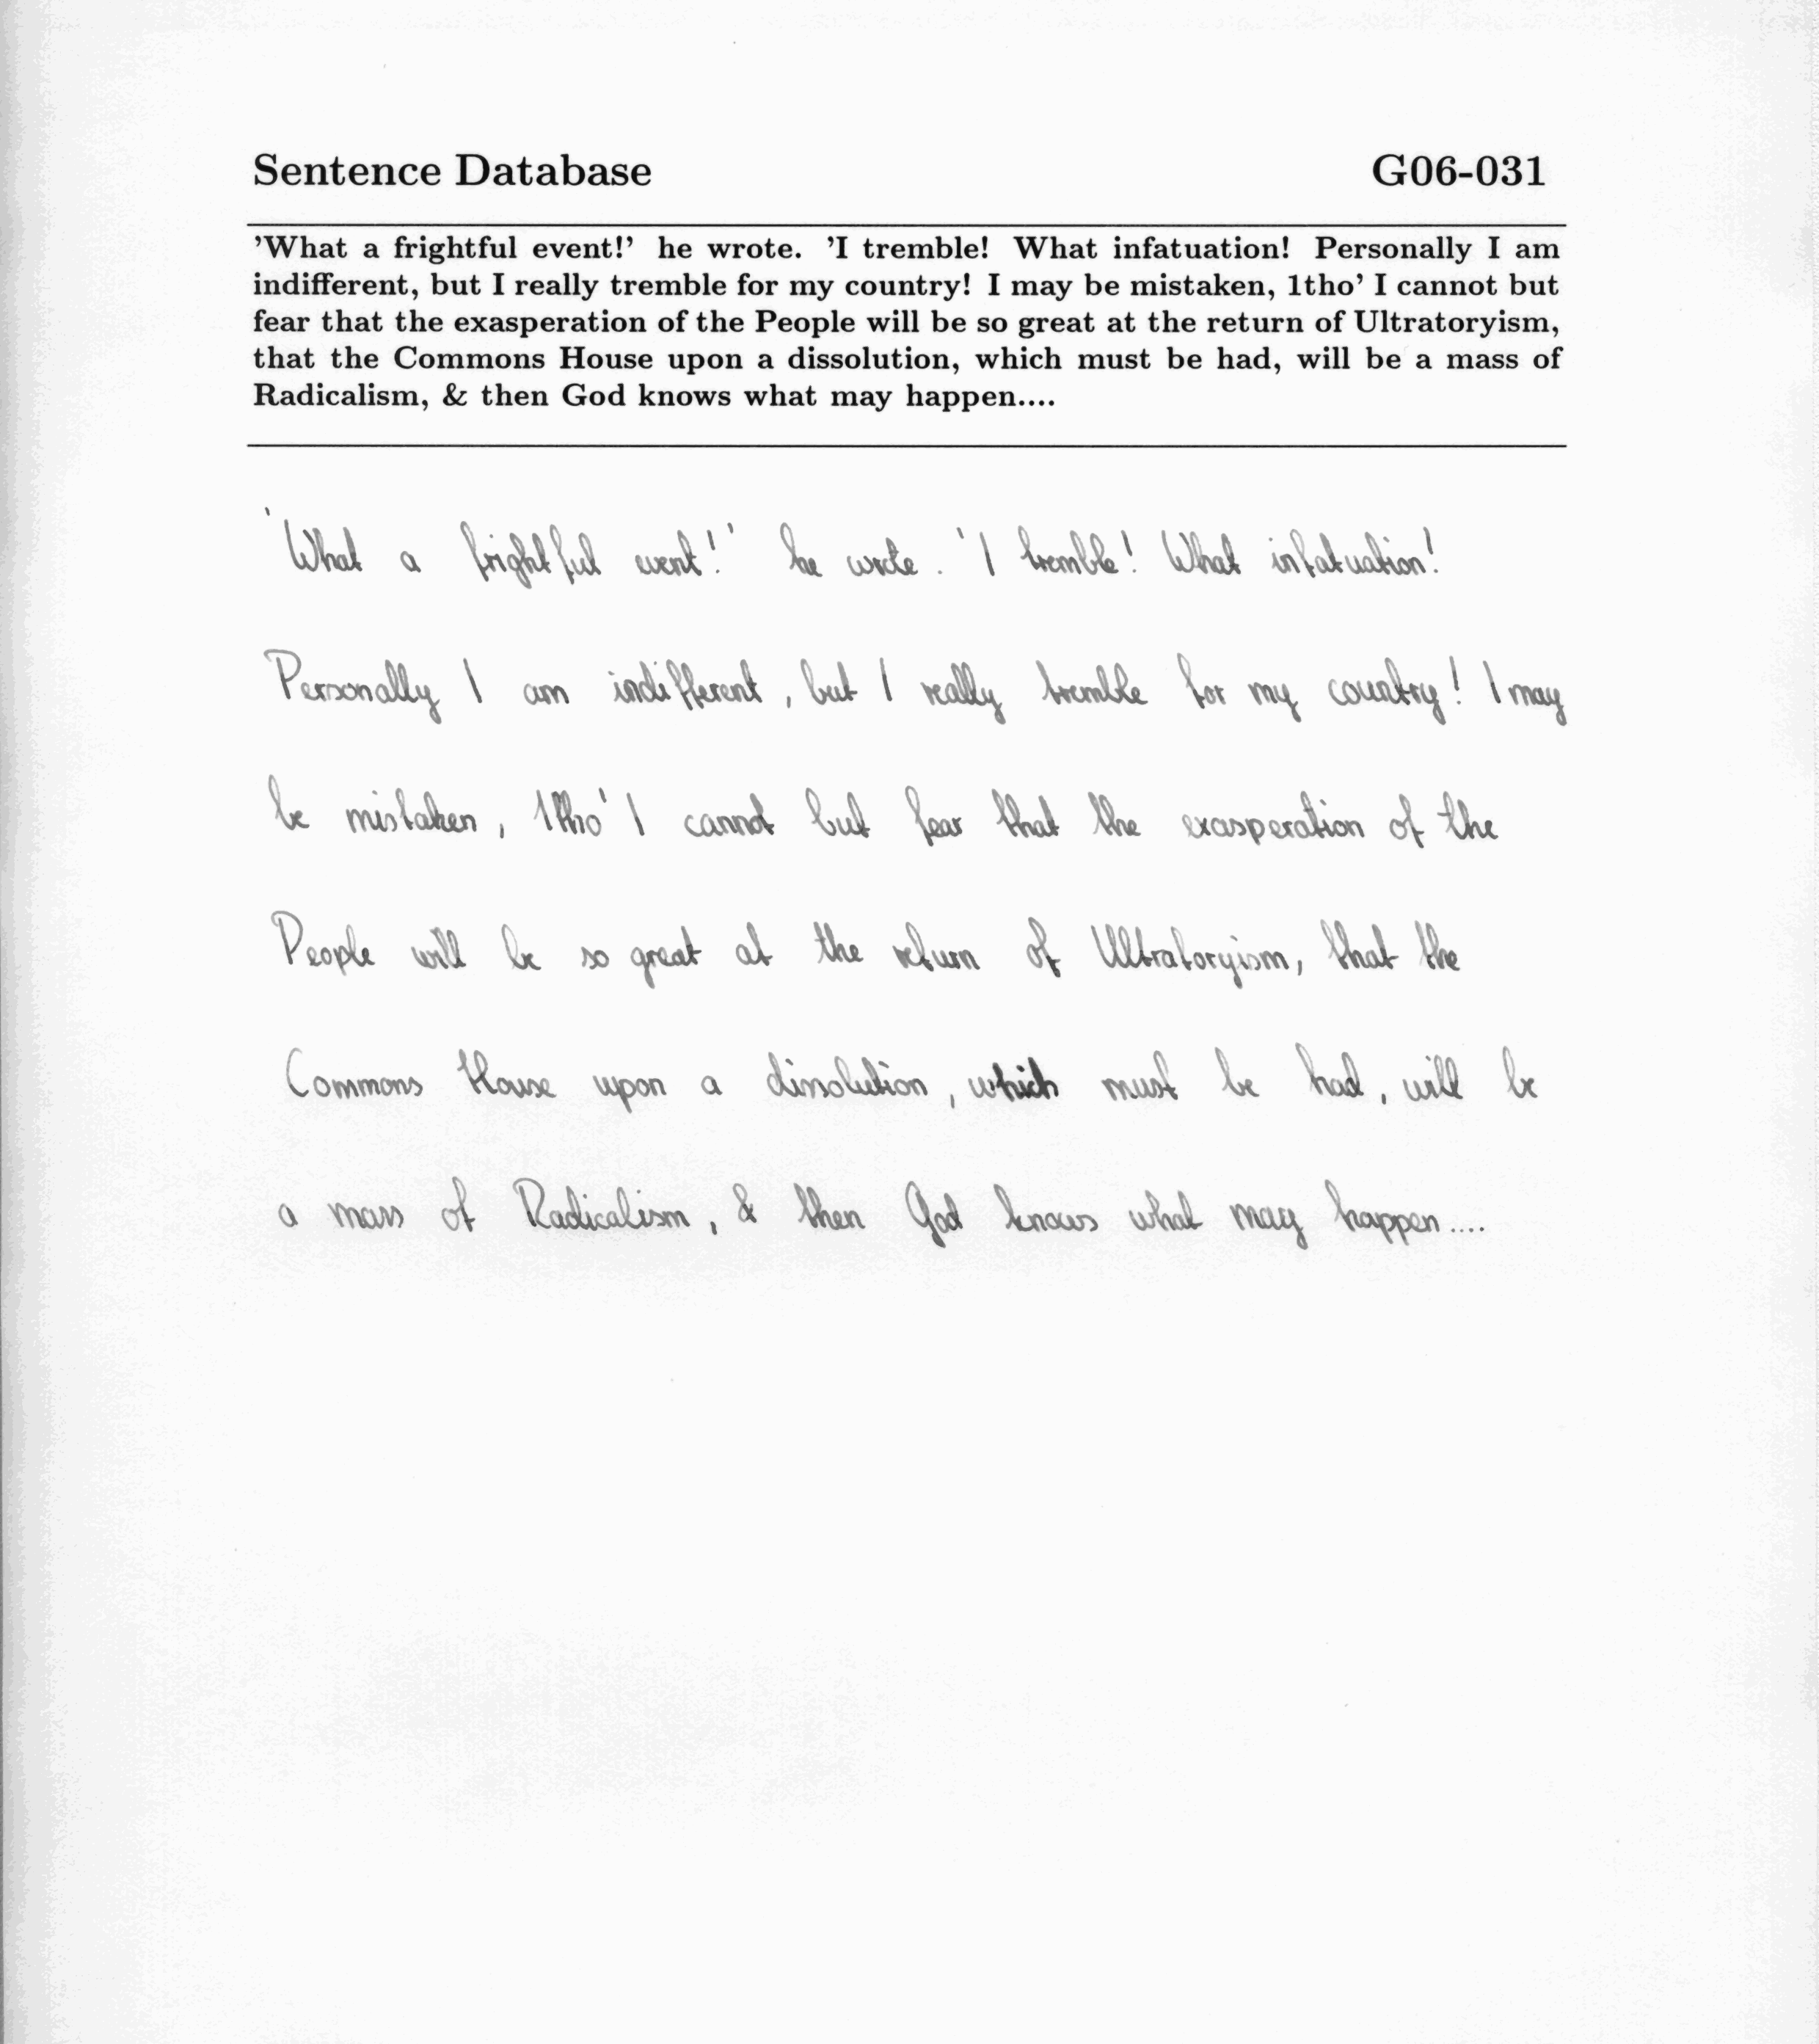 Sentence Database G06-031
'What a frightful event!' he wrote. 'I tremble! What infatuation! Personally I am
indifferent, but I really tremble for my country! I may be mistaken, 1tho' I cannot but
fear that the exasperation of the People will be so great at the return of Ultratoryism,
that the Commons House upon a dissolution, which must be had, will be a mass of
Radicalism, & then God knows what may happen....
'What a frightful event!' he wrote. 'I tremble! What infatuation!
Personally I am indifferent, but I really tremble for my country! I may
be mistaken, 1tho' I cannot but fear that the exasperation of the
People will be so great at the return of Ultratoryism, that the
Commons House upon a dissolution, which must be had, will be
a mass of Radicalism, & then God knows what may happen....